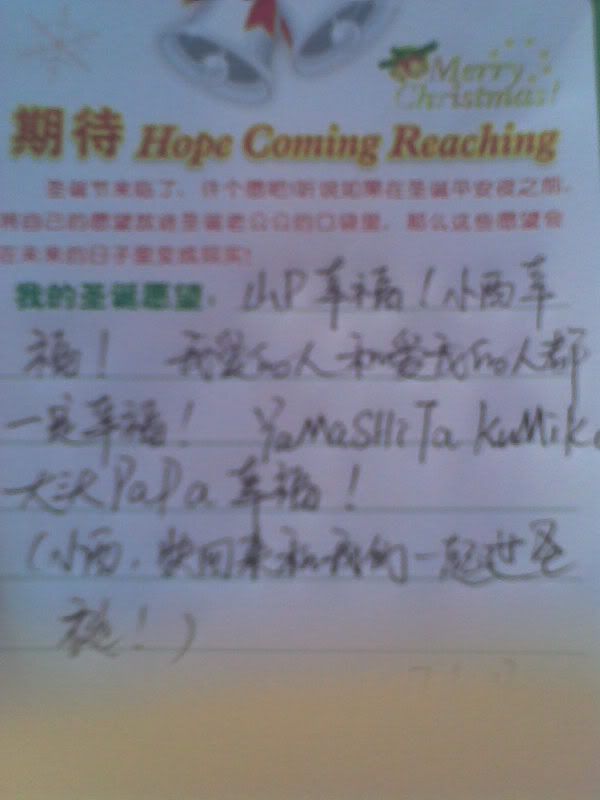 Merry
Christmas!
期待 Hope Coming Reaching
圣诞节来临了，许个愿吧!听说如果在圣诞平安夜之前，
将自己的愿望放进圣诞老公公的口袋里，那么这些愿望会
在未来的日子里变成现实!
我的圣诞愿望： 山P幸福！小西幸
福！ 我爱的人和爱我的人都
一定幸福！ YaMaSHiTa KuMiko
PaPa 幸福！
（小西，快回来和我们一起过圣
诞！）